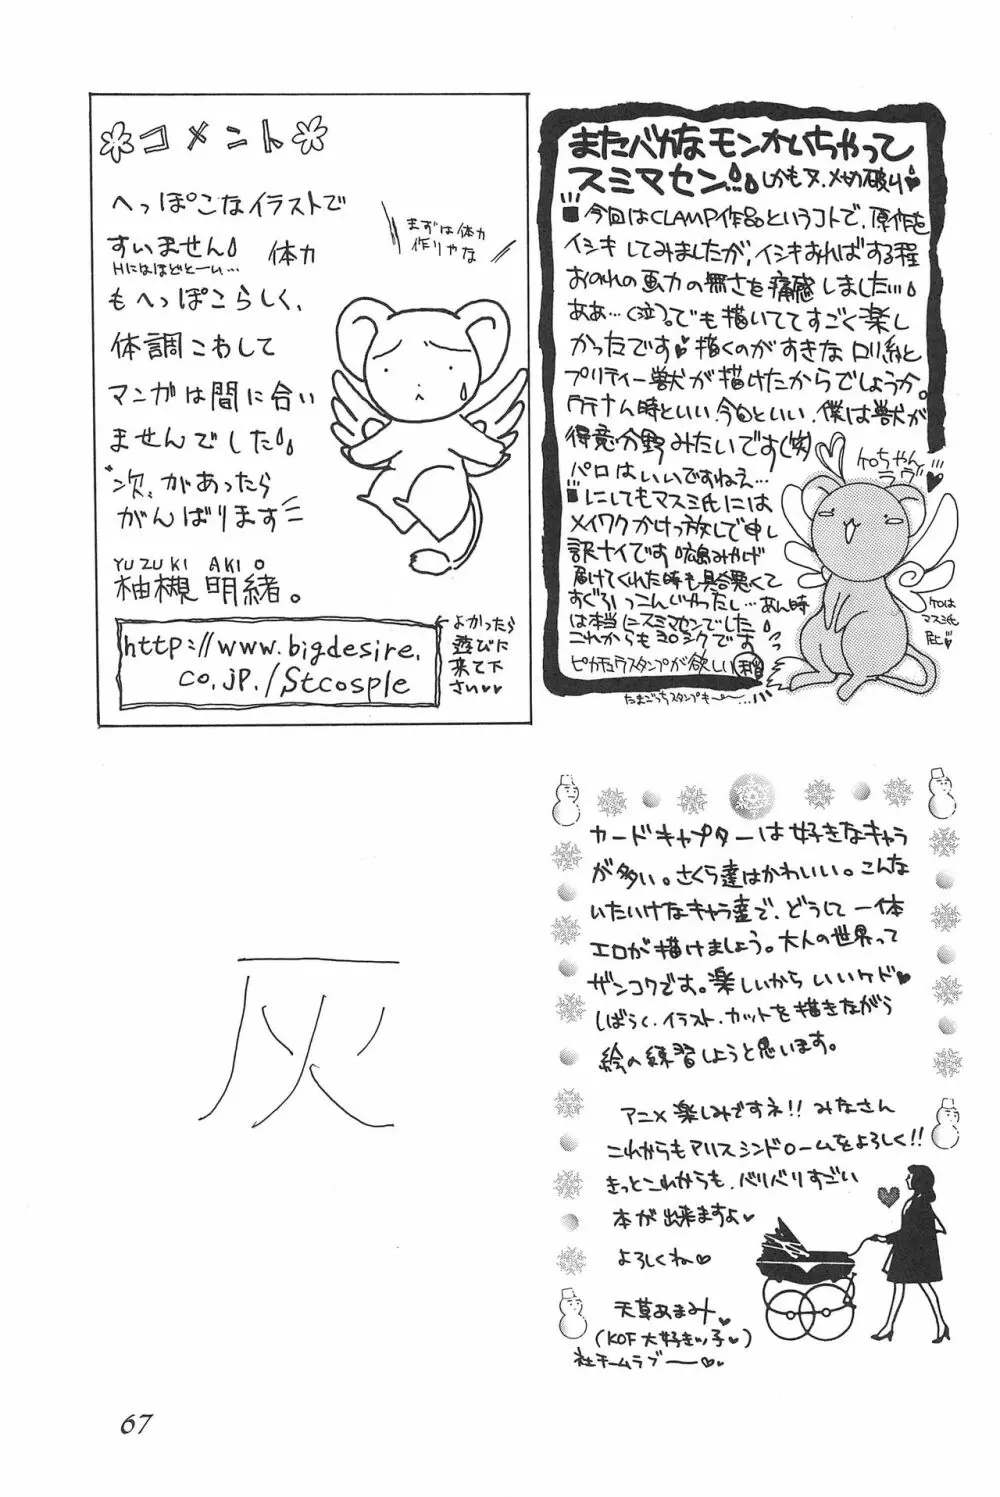 コメント
へっぽこなイラストで
すいません 体力
Hにはほどとーい…
もへっぽこらしく、
体調こわして
マンガは間に合い
ませんでした
次、があったら
がんばります
まずは体力
作りやな
YUZUKI AKI
柚槻 明緒。
http://www.bigdesire.
co.jp./Stcosple
よかったら
遊びに
来て下
さい
またバカなモンかいちゃって
スミマセン… しかも〆切破り
今回はCLAMP作品というコトで、原作を
イシキしてみましたが、イシキすればする程
おのれの画力の無さを痛感しました…
ああ…(泣)。でも描いててすごく楽し
かったです 描くのがすきなロリ絵と
プリティー獣が描けたからでしょうか。
時といい、今回といい、僕は獣が
得意分野みたいです(笑)
パロはいいですねえ…
にしてもマスミ氏には
メイワクかけっ放しで申し
訳ナイです 広島みやげ
届けてくれた時も具合悪くて
すぐ あん時
は本当にスミマセンでした
これからもヨロシクです
ピカチュウスタンプが欲しい
たまごっちスタンプも〜
ケロちゃん
ラヴ
ケロは
マスミ氏
灰
カードキャプターは好きなキャラ
が多い。さくら達はかわいい。こんな
いたいけなキャラ達で、どうして一体
エロが描けましょう。大人の世界って
ザンコクです。楽しいからいいケド
しばらく、イラスト、カットを描きながら
絵の練習しようと思います。
アニメ楽しみですネ!! みなさん
これからもアリスシンドロームをよろしく!!
きっとこれからも、バリバリすごい
本が出来ますよ
よろしくね
天草あまみ
(KOF大好きッ子)
社チームラブ──
67